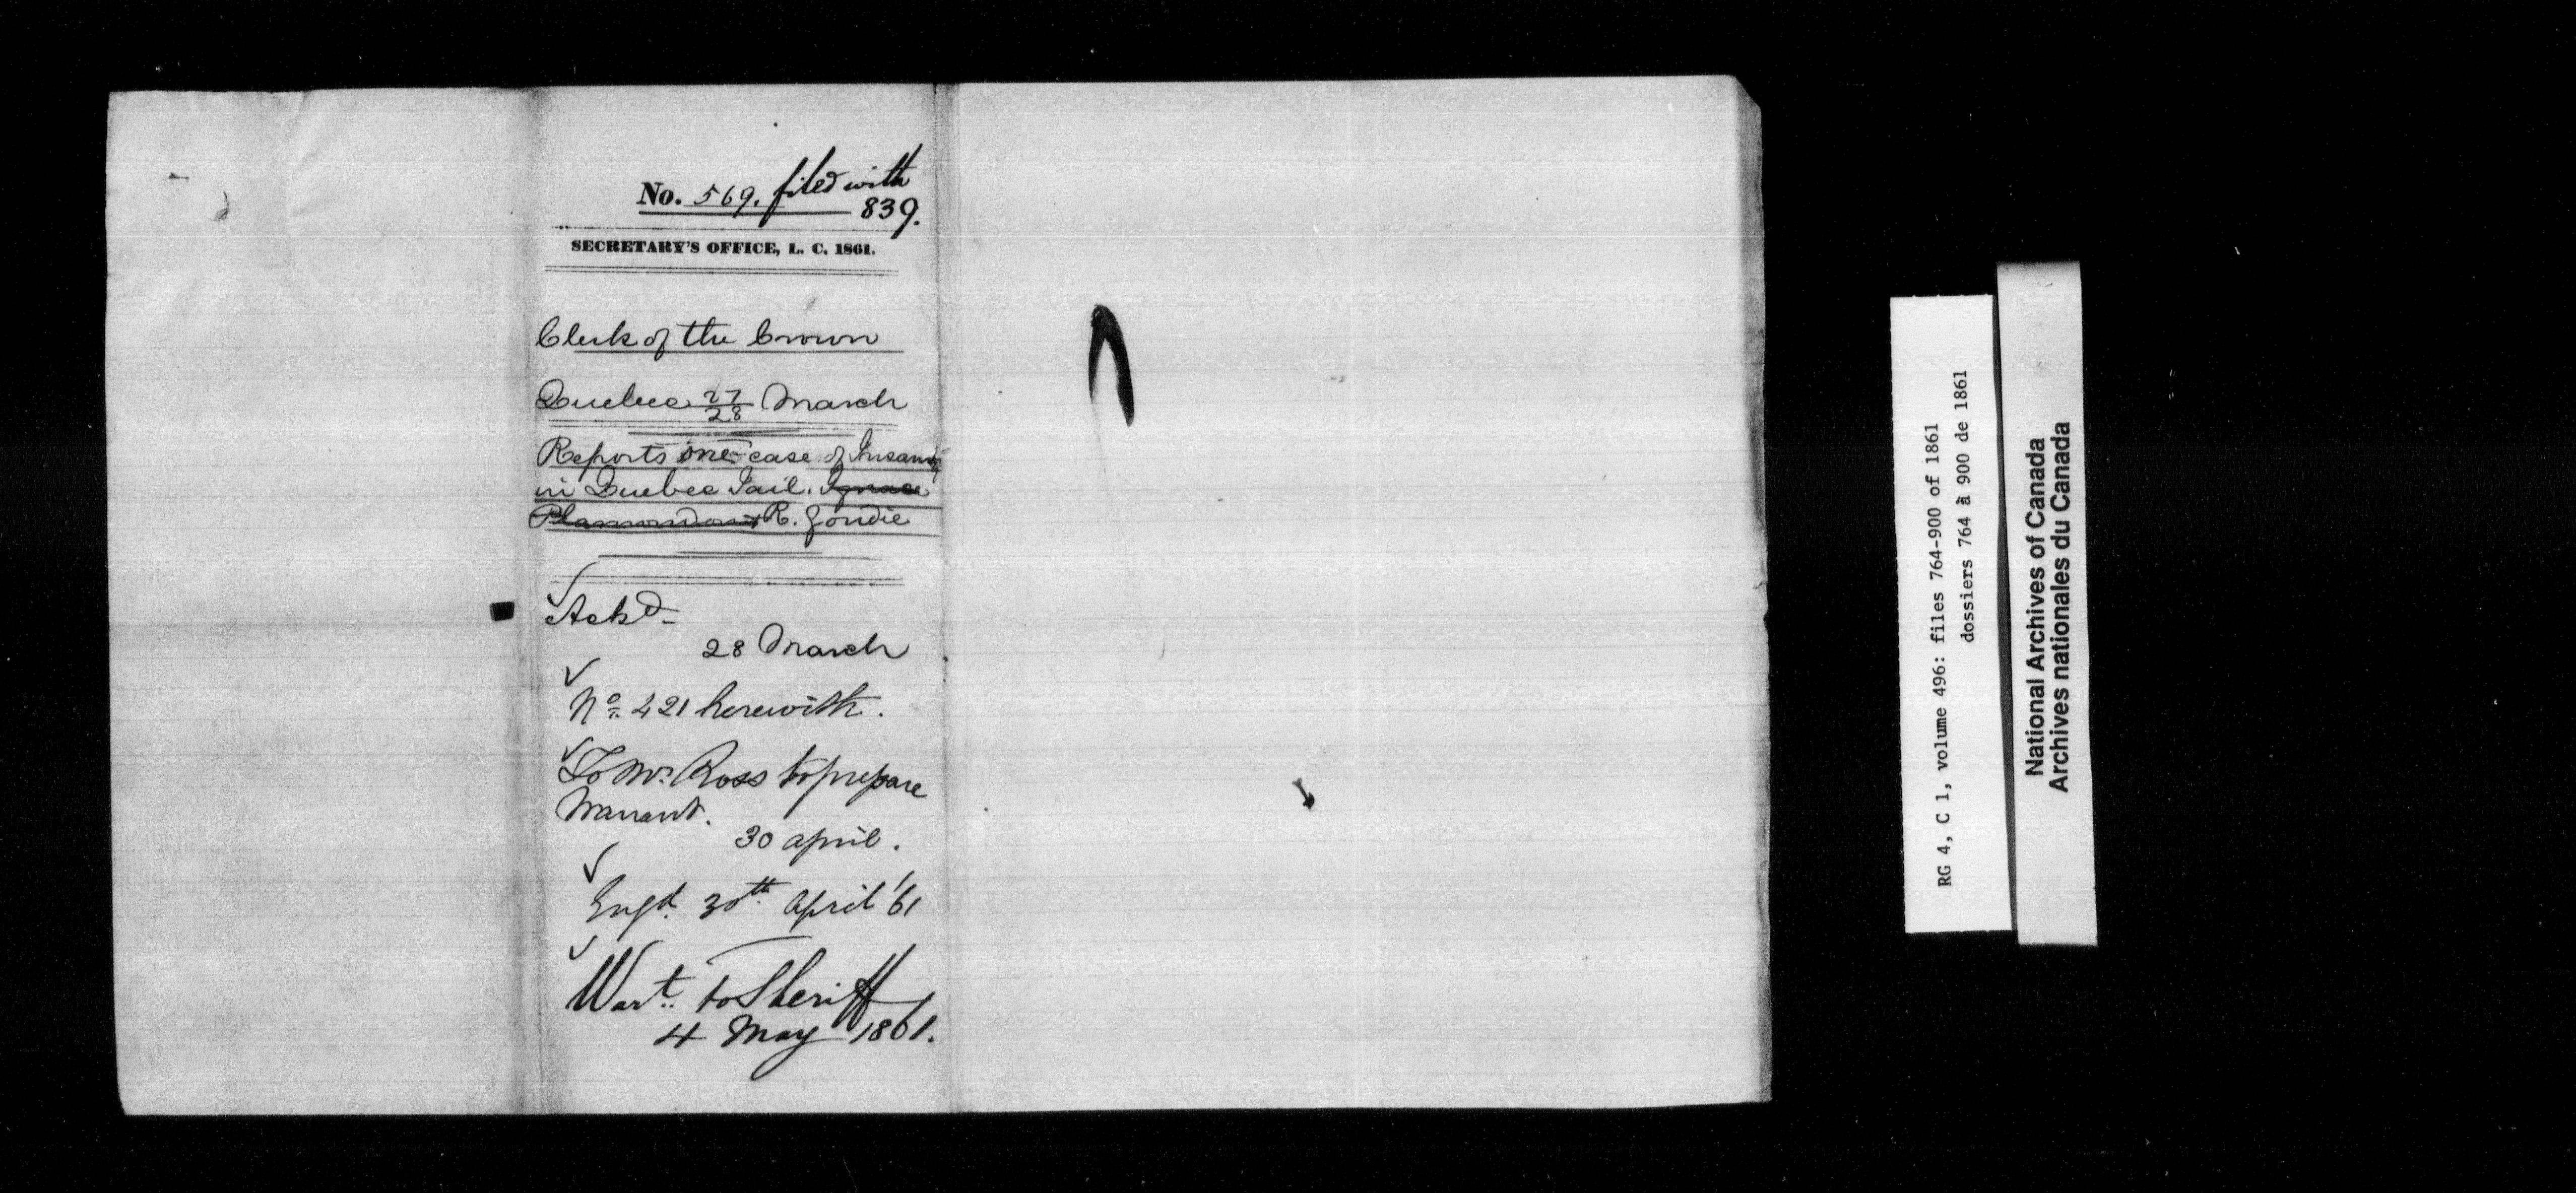 No. 569. filed with
839.
SECRETARY'S OFFICE, L. C. 1861.
Clerk of the Crown
Quebec 27/28 March
Reports one case of Insanity
in Quebec Jail. Ignace
Plamondon R. Goudie
Ackd
28 March
No. 421 herewith.
To Mr. Ross to prepare
Warrant.
30 april.
Engd. 30th april '61
Wart. to Sheriff
4 May 1861.
RG 4, C 1, volume 496: files 764-900 of 1861
dossiers 764 à 900 de 1861
National Archives of Canada
Archives nationales du Canada